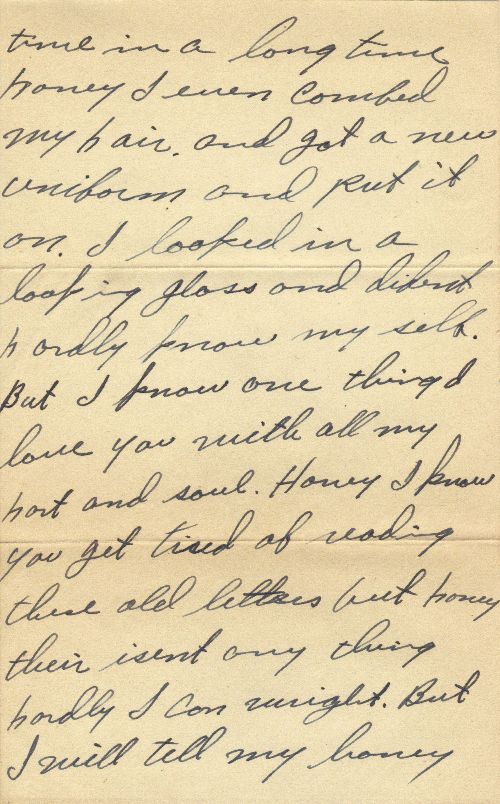 time in a long time
honey I even combed
my hair. and got a new
uniform and put it
on. I looked in a
looking glass and dident
hardly know my self.
But I know one thing I
love you with all my
hart and soul. Honey I know
you get tired of reading
these old letters but honey
their isent any thing
hardly I can wright. But
I will tell my honey